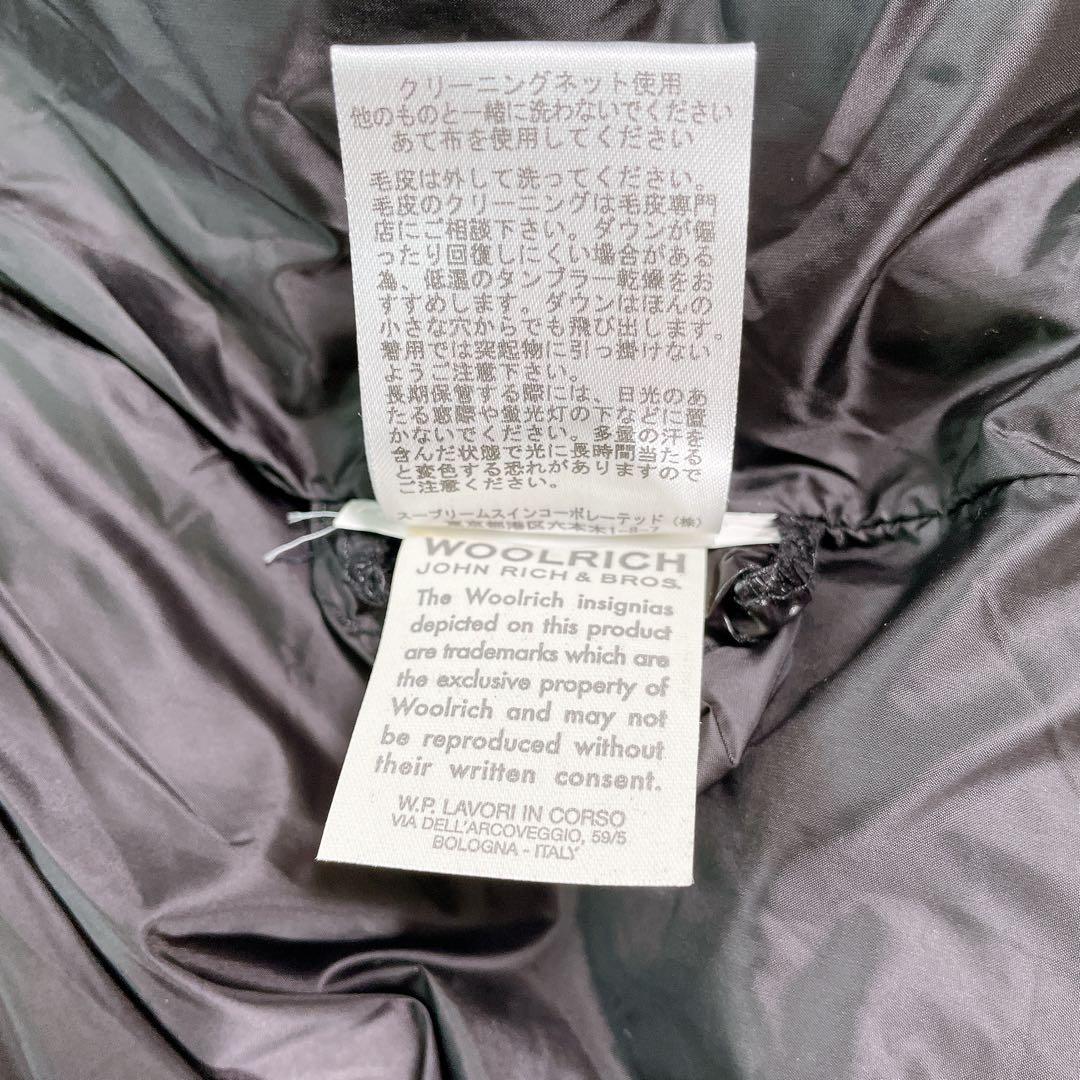 クリーニングネット使用
他のものと一緒に洗わないでください
あて布を使用してください
毛皮は外して洗ってください。
毛皮のクリーニングは毛皮専門
店にご相談下さい。ダウンが偏
ったり回復しにくい場合がある
為、低温のタンブラー乾燥をお
すすめします。ダウンはほんの
小さな穴からでも飛び出します。
着用では突起物に引っ掛けない
ようご注意下さい。
長期保管する際には、日光のあ
たる窓際や蛍光灯の下などに置
かないでください。多量の汗を
含んだ状態で光に長時間当たる
と変色する恐れがありますので
ご注意ください。
スープリームスインコーポレーテッド（株）
東京都港区六本木
WOOLRICH
JOHN RICH & BROS.
The Woolrich insignias
depicted on this product
are trademarks which are
the exclusive property of
Woolrich and may not
be reproduced without
their written consent.
W.P. LAVORI IN CORSO
VIA DELL'ARCOVEGGIO, 59/5
BOLOGNA - ITALY